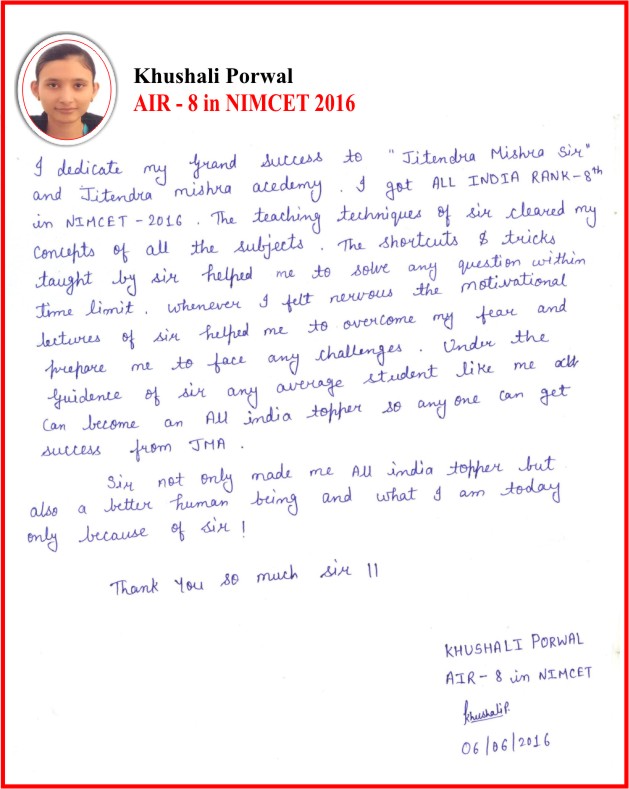 Khushali Porwal
AIR - 8 in NIMCET 2016
I dedicate my grand success to "Jitendra Mishra Sir"
and Jitendra mishra acedemy. I got ALL INDIA RANK-8th
in NIMCET-2016. The teaching techniques of sir cleared my
concepts of all the subjects. The shortcuts & tricks
taught by sir helped me to solve any question within
time limit. whenever I felt nervous the motivational
lectures of sir helped me to overcome my fear and
prepare me to face any challenges. Under the
guidence of sir any average student like me
can become an All india topper so any one can get
success from JMA.
Sir not only made me All india topper but
also a better human being and what I am today
only because of sir!
Thank You so much sir !!
KHUSHALI PORWAL
AIR-8 in NIMCET
KhushaliP.
06/06/2016